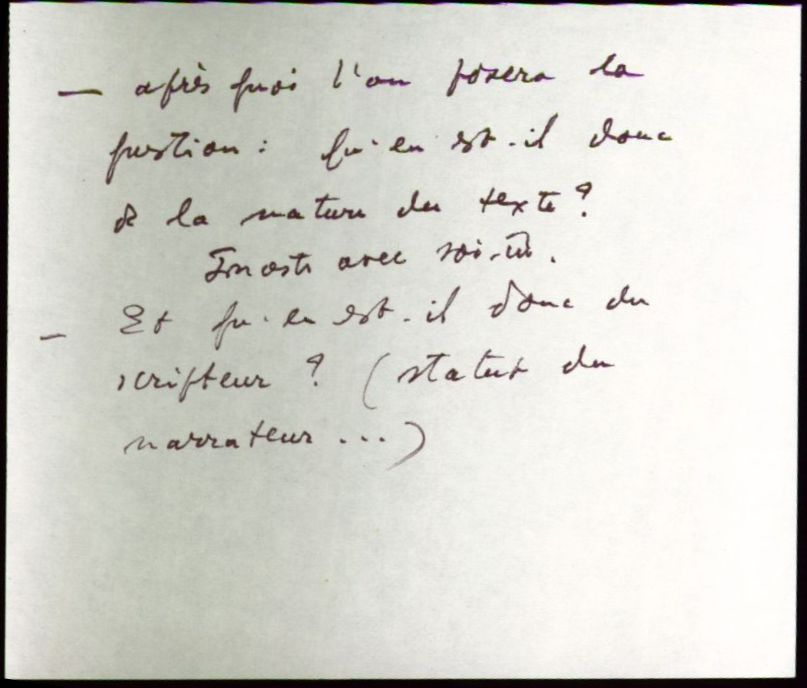 — après quoi l'on posera la
question : qu'en est-il donc
de la nature du texte ?
avec soi-m̄.
— Et qu'en est-il donc du
scripteur ? (statut du
narrateur ...)